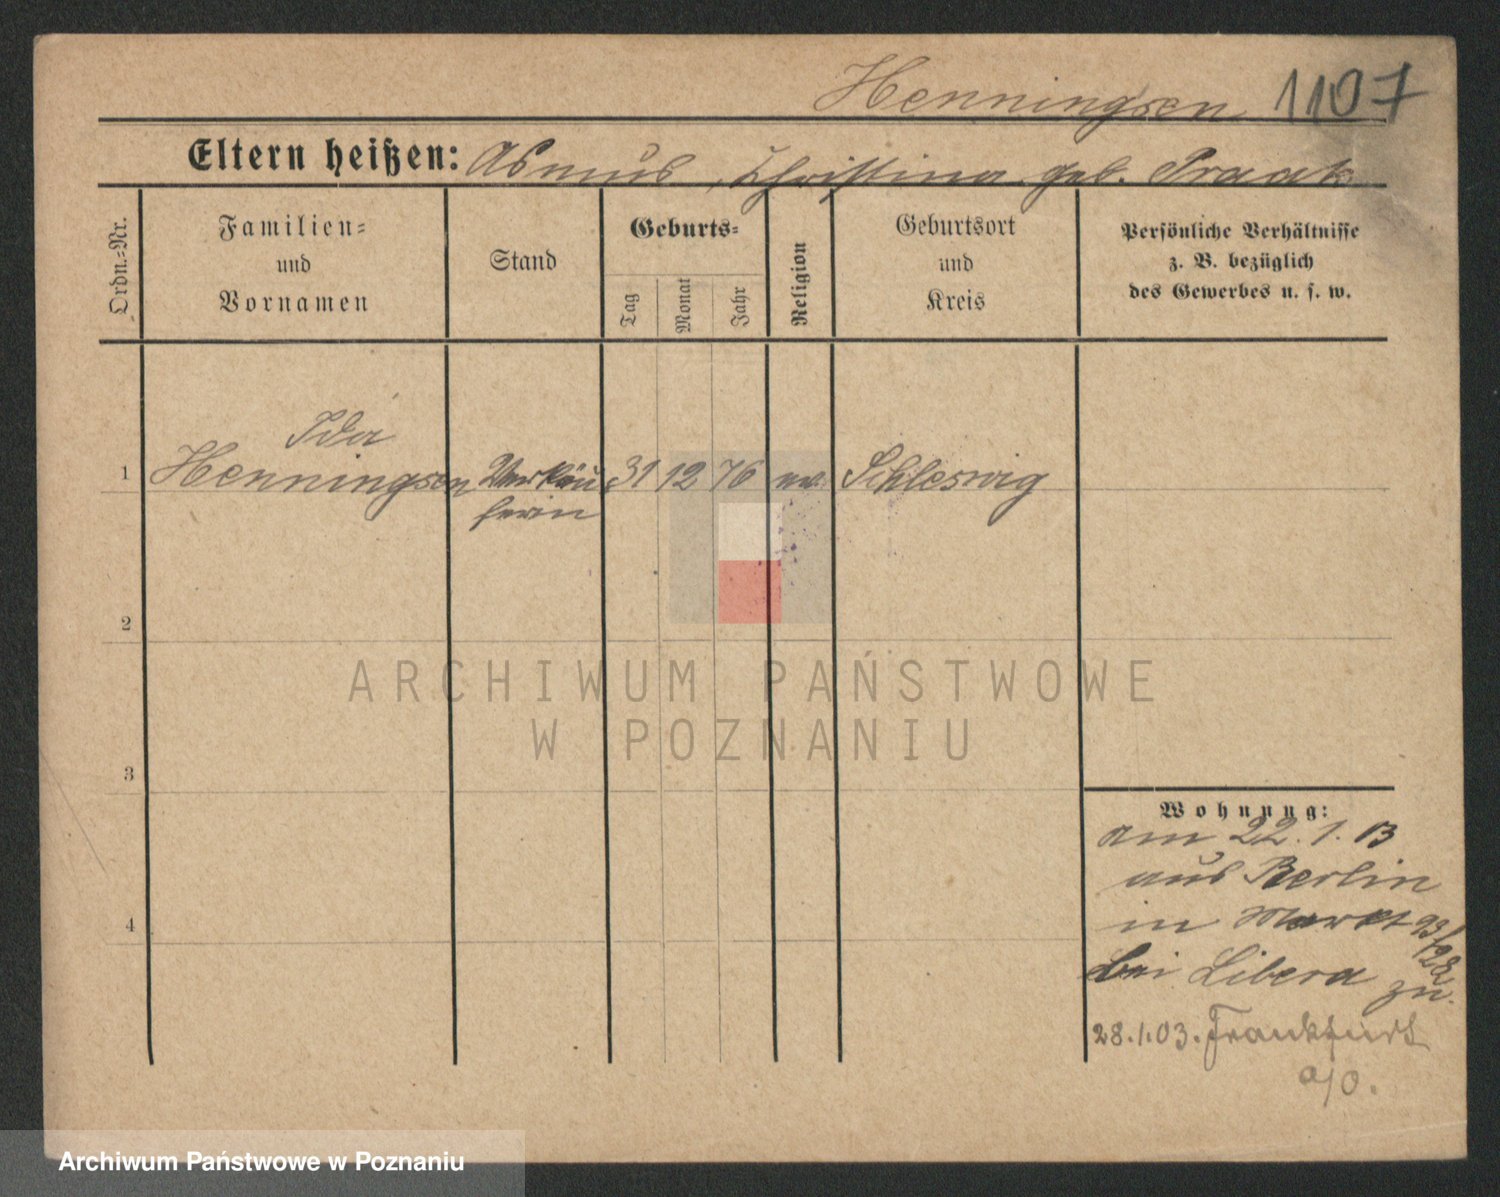 Henningsen 1107
Eltern heißen: Asmus, Christina geb. Praak
Ordn.=Nr.
Familien=
und
Vornamen
Stand
Geburts=
Tag
Monat
Jahr
Religion
Geburtsort
und
Kreis
Persönliche Verhältnisse
z. B. bezüglich
des Gewerbes u. s. w.
Ida
1 Henningsen Verkäu 31 12 76 ev Schleswig
ferin
2
ARCHIWUM PAŃSTWOWE
W POZNANIU
3
Wohnung:
am 22.1.03
aus Berlin
in Markt 93/92
bei Libera zu
28.1.03. Frankfurt
a/O.
4
Archiwum Państwowe w Poznaniu